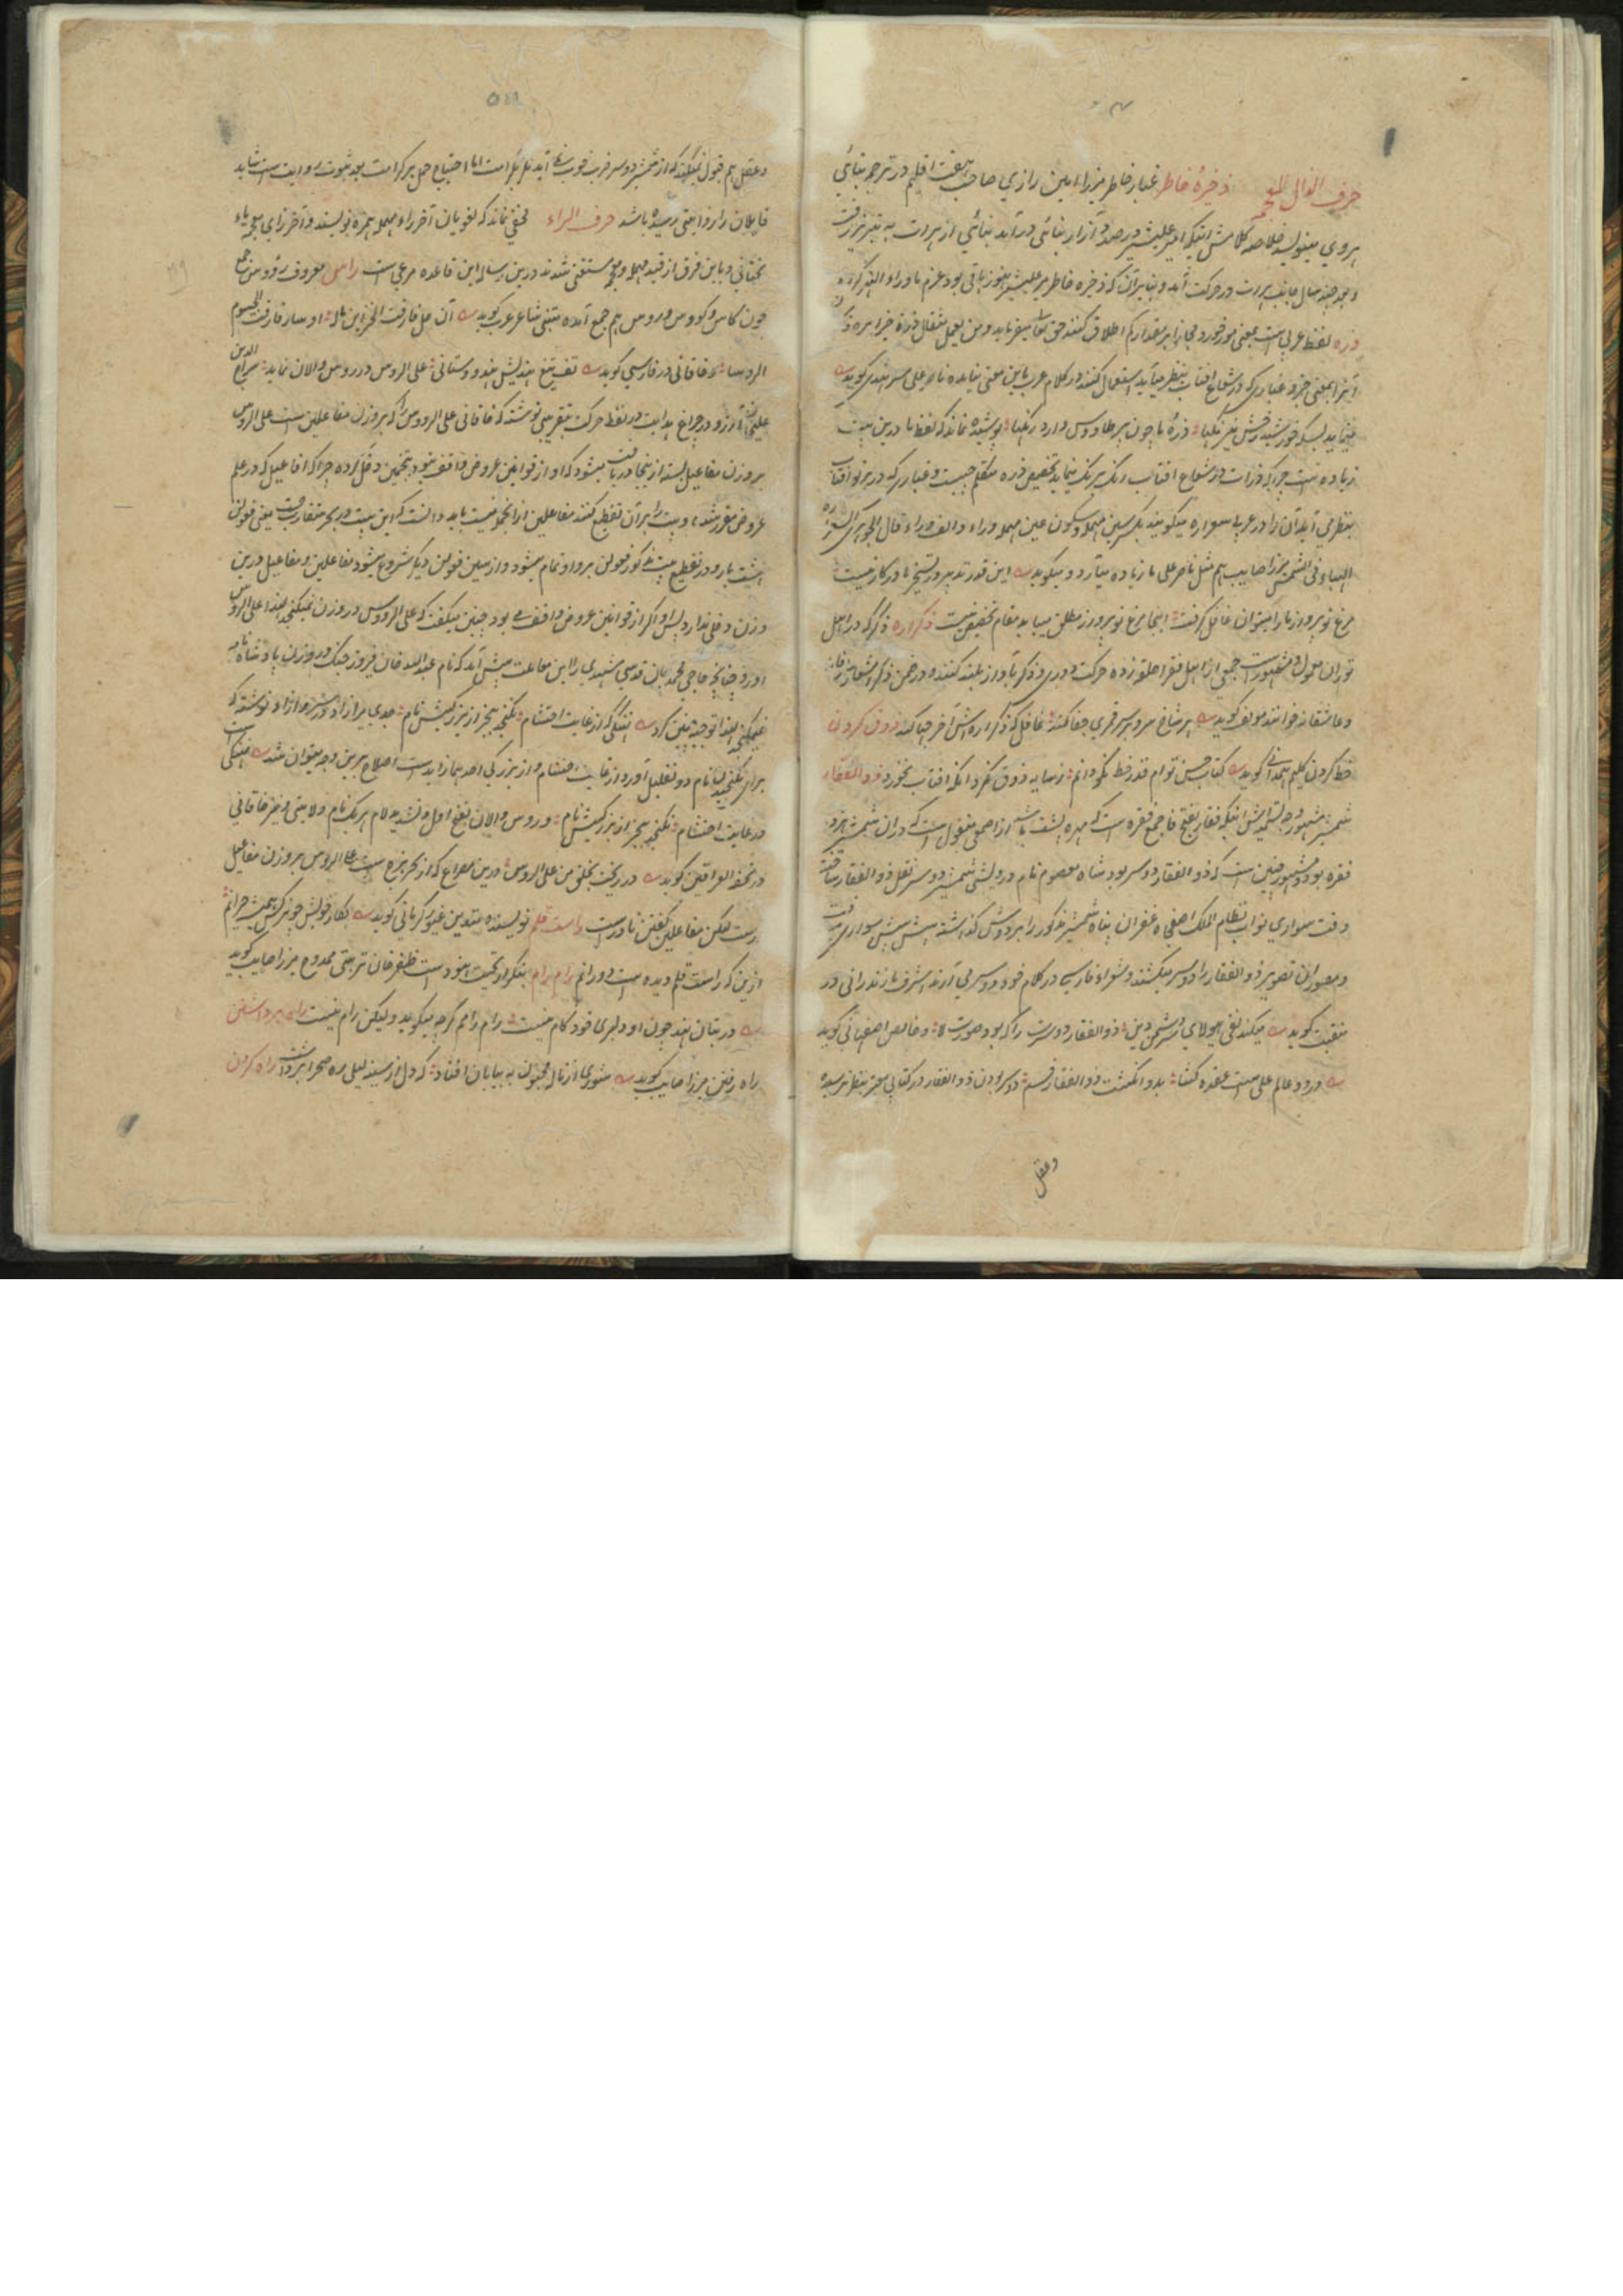 حرف الذال المعجمه ذخیرهٔ خاطر غبار خاطر میرزا امین رازی صاحب هفت اقلیم در ترجمه بنائی
هروی مینویسد خلاصه کلامش اینکه امیر علیشیر در صدد آزار بنائی درآمد بنائی از هرات به تبریز رفت
و بعد چند سال جانب هرات در حرکت آمد و بنابر آن که ذخیره خاطر میر علیشیر هنوز باقی بود عزم ماوراء النهر کرد
ذره لفظ عربی است بمعنی مور خورد و مجازا بر مقدار کم اطلاق کنند حق تعالی میفرماید و من یعمل مثقال ذرة خیرا یره و
آنرا بمعنی جزو غباری که در شعاع آفتاب بنظر می آید استعمال کنند در کلام عرب باین معنی نیامده ناصر علی سرهندی گوید
مینماید بسکه خورشید رخش نیرنگها ذرهٔ ما چون پر طاووس دارد رنگها پوشیده نماند که لفظ ما درین بیت
زیاده است چرا که ذرات در شعاع آفتاب رنگ برنگ مینماید تخصیص ذره متکلم چیست و غباری که در پرتو آفتاب
بنظر می آید آن را در عربی سعراره میگویند بکسر سین مهمله و سکون عین مهمله و راء و الف و راء قال الجوهری السعراره
الهباء فی الشمس میرزا صایب هم مثل ناصر علی ما زیاده می آرد و میگوید این قدر تدبیر در تسخیر ما در کار نیست
مرغ نو پرواز ما را میتوان غافل گرفت اینجا مرغ نو پرواز مطلق میباید مقام تخصیص نیست ذکر اره ذکری که در اهل
توران معمول و مشهور است جمعی از اهل فقر حلقه زده حرکت دوری و ذکر بآواز بلند کنند و در ضمن ذکر اشعار عارفانه
و عاشقانه خوانند مولف گوید بر شاخ سرو بر سر قمری جفا کند غافل که ذکر اره اش آخر چها کند ذوق کردن
حظ کردن کلیم همدانی گوید کتاب حسن توام قدر خط نکو دانم ز سایه ذوق نکرد آنکه آفتاب نخورد ذو الفقار
شمشیر مشهور وجه تسمیه اش اینکه فقار بفتح فا جمع فقره است که مهره پشت باشد از اصمعی منقول است که در آن شمشیر هژده
فقره بود و مشهور چنین است که ذو الفقار دو سر بود شاه معصوم نام درویشی شمشیر دو سر نقل ذو الفقار ساخته
وقت سواری نواب نظام الملک آصفجاه غفران پناه شمشیر مذکور را بر دوش گذاشته پیش پیش سواری میرفت
و مصوران تصویر ذو الفقار را دو سر میکشند و شعراء فارسی در کلام خود دو سر می آرند اشرف مازندرانی در
منقبت گوید میکند نفی هیولای دشمن دین ذو الفقار دو سرت را که بود صورت لا و خالص اصفهانی گوید
درود عالم علی است عقده کشا بدو انگشت ذو الفقار قسم دو سر بودن ذو الفقار در کتابی معتبر بنظر نرسیده
وعقل
وعقل هم قبول نمیکند که از شمشیر دو سر ضرب خوب نمی آید مگر بکرامت اما احتیاج حمل بر کرامت بعد ثبوت روایت است شاید
قایلان را روایتی رسیده باشد حرف الراء مخفی نماند که لغویان آخر راء مهمله همزه نویسند و آخر زای معجمه یاء
تحتانی و باین فرق از قید مهمله و معجمه مستغنی شدند درین رساله این قاعده مرعی است راس معروف رؤوس جمع
چون کاس و کووس و روس هم جمع آمده متنبی شاعر عرب گوید
الروسا و خاقانی در فارسی گوید تف تیغ هندیش هندوستانی علی الروس در روس و الان نماید سراج الدین
علیخان آرزو در چراغ هدایت در لفظ حرکت بتقریبی نوشته که خاقانی علی الروس را که بر وزن مفاعلین است علی الروس
بر وزن مفاعیل بسته از ینجا دریافت میشود که او از قوانین عروض واقف نبود بتخمین دخل کرده چرا که افاعیل که در علم
عروض مقرر شده و بیت را بر آن تقطیع کنند مفاعلین از آنجمله نیست باید دانست که این بیت در بحر متقارب است یعنی فعولن
هشت بار و در تقطیع بیت مذکور فعولن بر واو تمام میشود و از سین فعولن دیگر شروع میشود مفاعلین و مفاعیل درین
وزن دخلی ندارد پس او اگر از قوانین عروض واقف می بود چنین میگفت که علی الرووس در وزن نمیگنجد لهذا علی الروس
آورد چنانچه حاجی محمد جان قدسی مشهدی را این معاملت پیش آمد که نام عبدالله خان فیروز جنگ در وزن پادشاه نامه
نمیگنجید لهذا توجیه چنین کرد
برای نگنجیدن نام دو تعلیل آورد از غایت احتشام و از بزرگی احدهما زاید است اصلاح برین وجه میتوان شد
ز غایت احتشام نگنجد ببحر از بزرگیش نام و روس و الان بفتح اول و تشدید لام هر یک نام ولایتی و نیز خاقانی
در تحفة العراقین گوید در ریخت بحلق من علی الروس درین مصراع که از بحر هزج است علی الروس بر وزن مفاعیل
است لکن مفاعلین گفتن نادرست راست قلم نویسنده متدین غیوری کرمانی گوید
ازین که راست قلم دیده است دورانم رام رام بتکرار تحیت هنود است ظفر خان تربیتی ممدوح میرزا صایب گوید
در بتان هند چون او دلبری خود کام نیست رام رامم گرچه میگوید ولیکن رام نیست راه برداشتن
راه رفتن میرزا صایب گوید شوری از ناله مجنون به بیابان افتاد که دل از سینه لیلی ره صحرا برداشت راه کردن